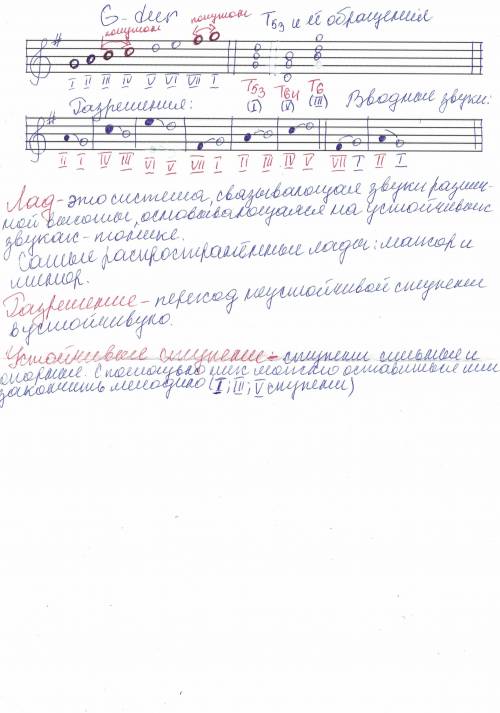 G-dur полутон полутон T53 и её обращения
I II III IV V VI VII I T53 T64 T6
(I) (V) (III)
Разрешения: Вводные звуки:
II I IV III VI V VII I II III IV V VII I II I
Лад - это система, связывающая звуки различ-
ной высоты, основывающаяся на устойчивых
звуках - тонике.
Самые распространённые лады: мажор и
минор.
Разрешение - переход неустойчивой ступени
в устойчивую.
Устойчивые ступени - ступени сильные и
опорные. С помощью них можно остановиться или
закончить мелодию (I; III; V ступени)